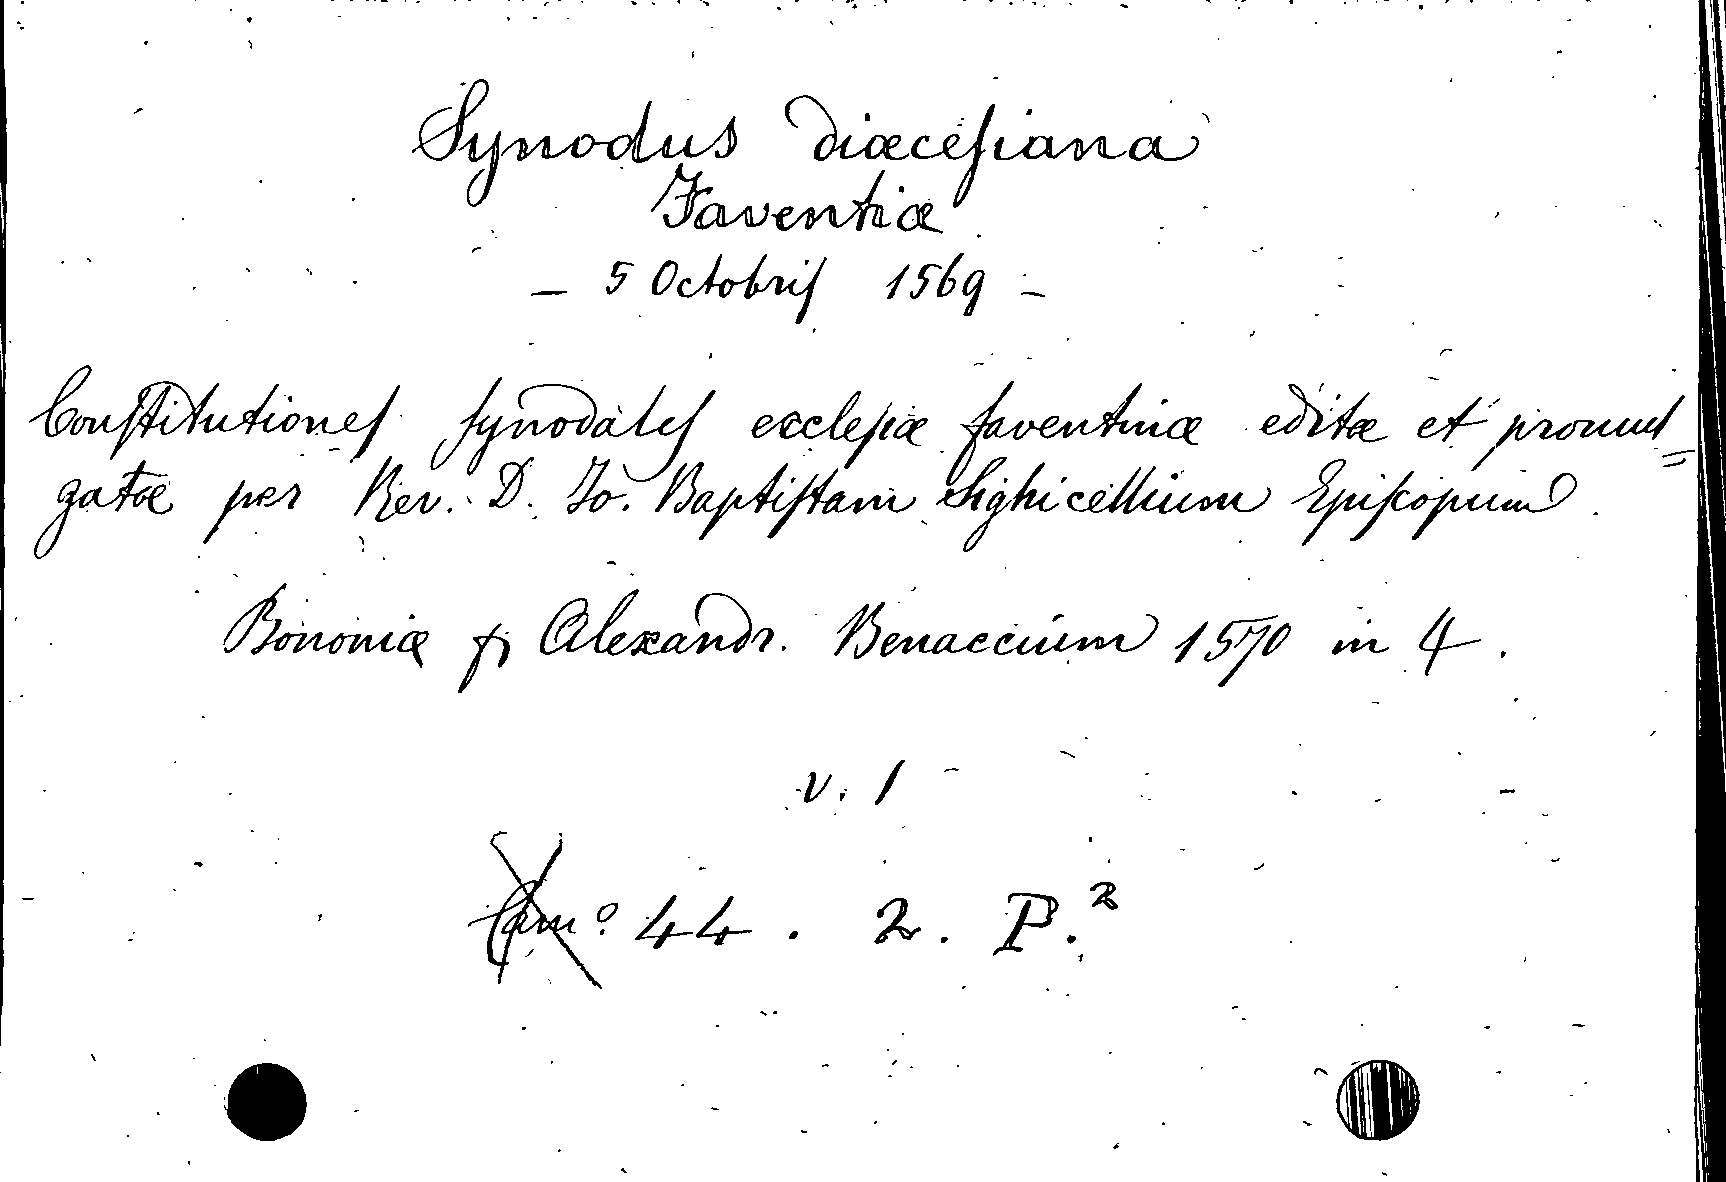 Synodus diœcesiana
Faventiæ
- 5 Octobris 1569 -
Constitutiones synodales ecclesiæ faventinæ editæ et promul=
gatæ per Rev. D. Jo. Baptistam Sighicellium Episcopum
Bononiæ Alexandr. Benaccium 1570 in 4.
v. 1
44. 2. P.²